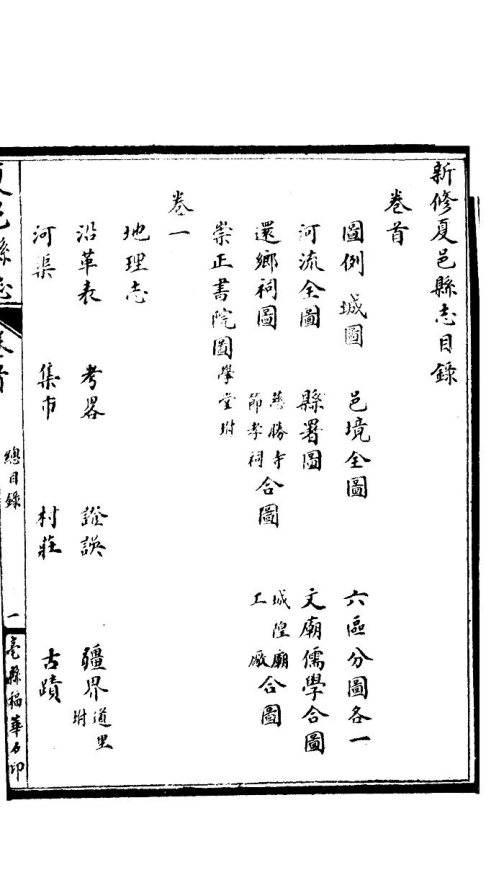 新修夏邑縣志目錄
卷首
圖例 城圖 邑境全圖 六區分圖各一
河流全圖 縣署圖 文廟儒學合圖
還鄉祠圖 慈勝寺節孝祠合圖 城隍廟工廠合圖
崇正書院圖學堂坿
卷一
地理志
沿革表 考畧 證誤 疆界道里坿
河渠 集市 村莊 古蹟
夏邑縣志 卷首 總目錄 一 亳縣福華石印